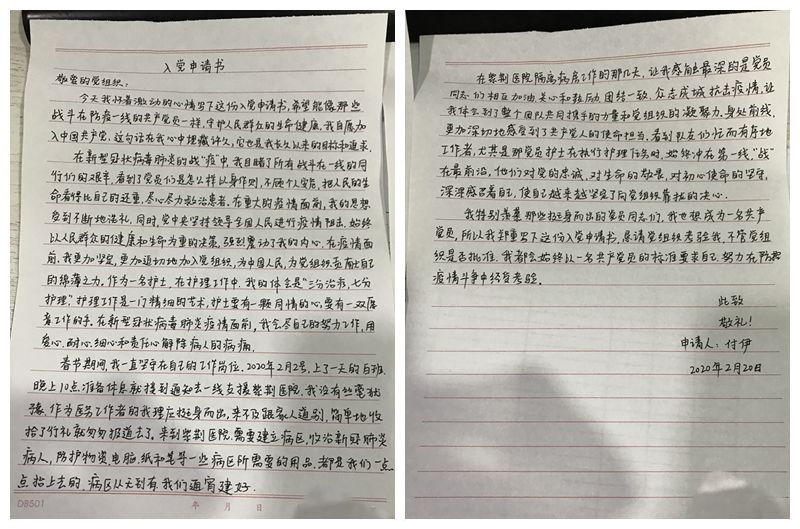 入党申请书
敬爱的党组织:
今天我怀着激动的心情写下这份入党申请书,希望能像那些
战斗在防疫一线的共产党员一样,守护人民群众的生命健康,我自愿加
入中国共产党,这句话在我心中埋藏许久,它也是我长久以来的目标和追求。
在新型冠状病毒肺炎的战"疫"中,我目睹了所有战斗在一线的同
行们的艰辛,看到了党员们是怎么样以身作则,不顾个人安危,把人民的生
命看得比自己的还重,尽心尽力救治患者。在重大的疫情面前,我的思想
受到不断地洗礼,同时,党中央坚持领导全国人民进行疫情阻击,始终
以人民群众的健康和生命为重的决策,强烈震动了我的内心。在疫情面
前,我更加坚定,更加迫切地加入党组织,为中国人民,为党组织贡献出自己
的绵薄之力。作为一名护士,在护理工作中,我的体会是"三分治疗,七分
护理"护理工作是一门精细的艺术,护士要有一颗同情的心,要有一双愿
意工作的手。在新型冠状病毒肺炎疫情面前,我会尽自己的努力工作,用
爱心、耐心、细心和责任心解除病人的病痛。
春节期间,我一直坚守在自己的工作岗位,2020年2月2号,上了一天的白班
晚上10点,准备休息就接到通知去一线支援紫荆医院,我没有丝毫犹
豫,作为医务工作者的我理应挺身而出,来不及跟家人道别,简单地收
拾了行礼就匆匆报道去了。来到紫荆医院,需要建立病区,收治新冠肺炎
病人,防护物资,电脑,纸和笔等一些病区所需要的用品,都是我们一点
点抬上去的,病区从无到有,我们通宵建好.
D8501
年 月 日
在紫荆医院隔离病房工作的那几天,让我感触最深的是党员
同志们相互加油,关心和鼓励,团结一致,众志成城抗击疫情,让
我体会到了整个团队共同携手的力量和党组织的凝聚力,身处前线,
更加深切地感受到了共产党人的使命担当,看到队友们忙而有序地
工作着,尤其是那党员护士在执行护理任务时,始终冲在第一线,"战"
在最前沿,他们对党的忠诚,对生命的敬畏,对初心使命的坚守,
深深感召着自己,使自己越来越坚定了向党组织靠拢的决心。
我特别羡慕那些挺身而出的党员同志们,我也想成为一名共产
党员,所以我郑重写下这份入党申请书,恳请党组织考验我,不管党组
织是否批准,我都会始终以一名共产党员的标准要求自己,努力在防控
疫情斗争中经受考验。
此致
敬礼!
申请人:付伊
2020年2月20日